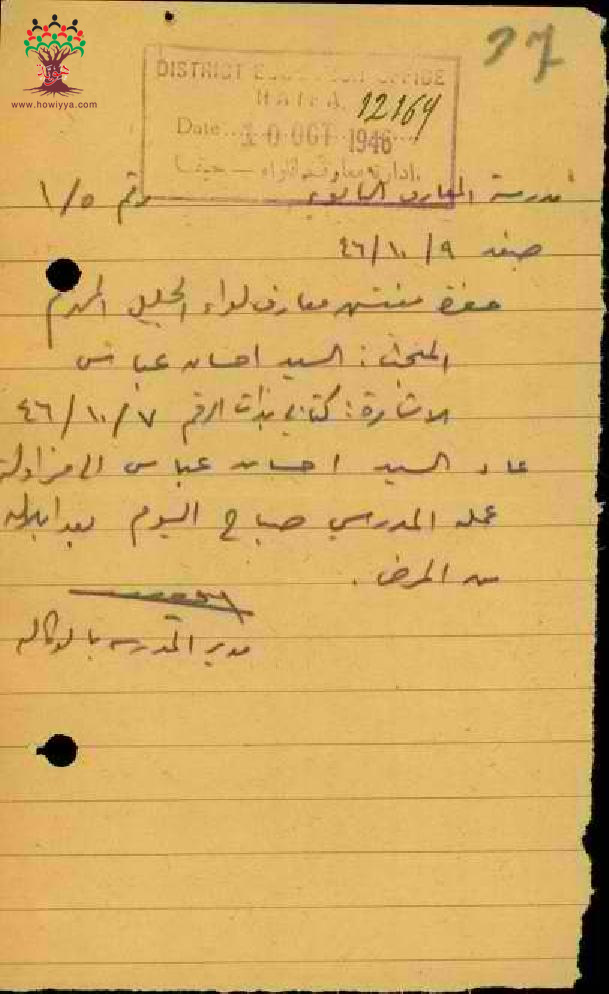 37
DISTRICT EDUCATION OFFICE
HAIFA.
12164
Date 10 OCT 1946
ادارة معارف اللواء — حيفا
مدرسة المعارف الثانوية رقم ١/٥
صفد ٤٦/١٠/٩
حضرة مفتش معارف لواء الجليل المحترم
المبحث: السيد احسان عباس
الاشارة: كتابي بذات الرقم ٤٦/١٠/٧
عاد السيد احسان عباس الى مزاولة
عمله المدرسي صباح اليوم بعد ابلاله
من المرض.
مدير المدرسة بالوكالة
www.howiyya.com